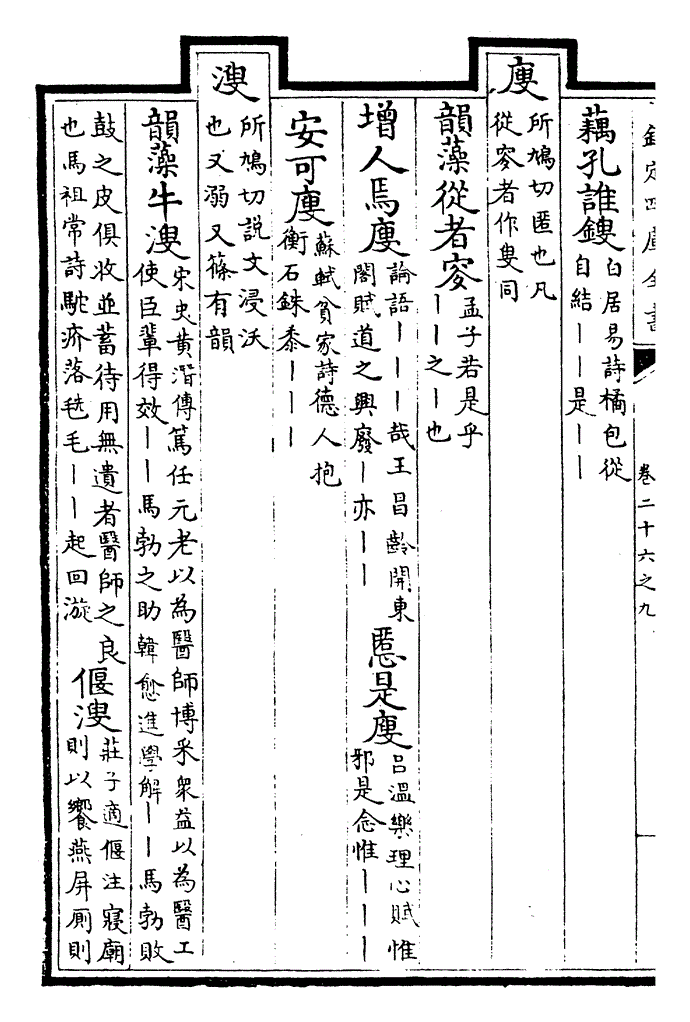 欽定四庫全書
卷二十六之九
藕孔誰鎪
白居易詩橘包從
自結丨丨是丨丨
廋
所鳩切匿也凡
從叜者作叟同
韻藻從者叜
孟子若是乎
丨丨之丨也
增人焉廋
論語丨丨丨哉王昌齡開東
閣賦道之興廢丨亦丨丨
慝是廋
呂溫樂理心賦惟
邪是念惟丨丨丨
安可廋
蘇軾貧家詩德人抱
衡石銖黍丨丨丨
溲
所鳩切説文浸沃
也又溺又篠有韻
韻藻牛溲
宋史黄潛傳篤任元老以為醫師博采衆益以為醫工
使臣輩得效丨丨馬勃之助韓愈進學解丨丨馬勃敗
鼓之皮俱收並蓄待用無遺者醫師之良
也馬祖常詩駝疥落毯毛丨丨起回漩
偃溲
莊子適偃注寢廟
則以饗燕屏厠則